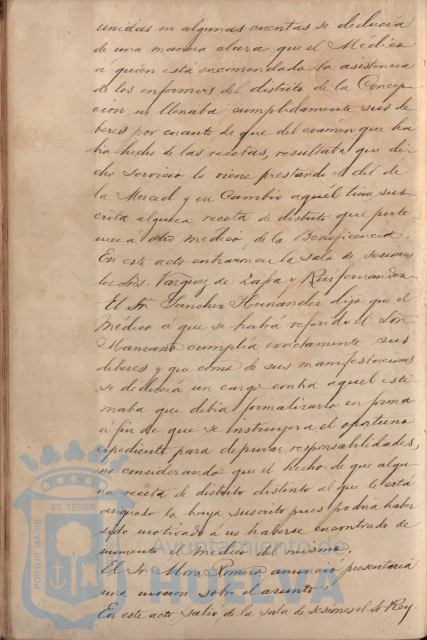 unidas en algunas cuentas, se deducia
de una manera clara que el Médico
á quien está encomendada la asistencia
de los enfermos del distrito de la Concep
cion, no llenaba cumplidamente sus de
beres por cuanto de que del exámen que ha
bia hecho de las recetas, resultaba que di
cho servicio lo viene prestando el del de
la Merced y en cambio aquél tiene sus
crita alguna receta de distrito que perte
nece á otro médico de la Beneficencia.
En este acto entraron en la sala de sesiones
los Sres. Vazquez de Zafra y Ruifernandez.
El Sr. Sanchez Hernández dijo que el
Médico a que se habia referido el Señor
Manzano cumplia exactamente sus
deberes y que como de sus manifestaciones
se deducia un cargo contra aquel esti
maba que debia formalizarlo en forma
a fin de que se instruyera el oportuno
expediente para depurar responsabilidades,
no considerando que el hecho de que algu
na receta de distrito distinto al que le está
asignado la haya suscrito pues podria haber
sido motivado á no haberse encontrado de
momento el médico del mismo.
El Sr. Mora Romero anunció presentaria
una mocion sobre el asunto.
En este acto salió de la sala de sesiones el Sr. Rey
PORTUS MARIS ET TERRÆ
Ayuntamiento de
HUELVA